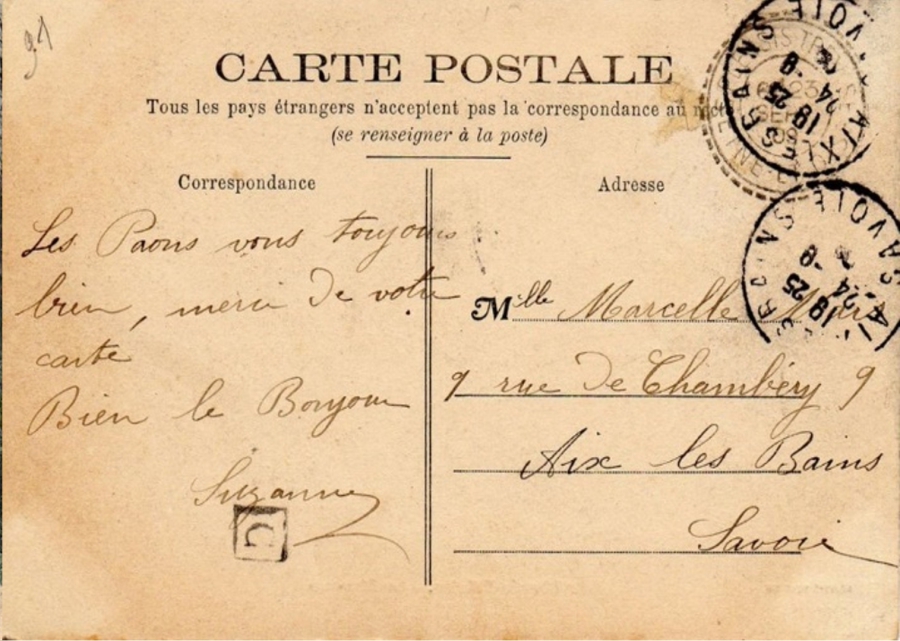 91
CARTE POSTALE
Tous les pays étrangers n'acceptent pas la correspondance au
(se renseigner à la poste)
Correspondance
Les Paons vous toujours
bien, merci de votre
carte
Bien le Bonjour
Suzanne
G
Adresse
Mlle Marcelle
9 rue de Chambéry 9
Aix les Bains
Savoie
AIX LES BAINS SAVOIE
SAVOIE